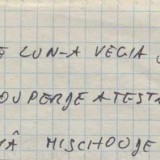 E LUN-A VEGIA
OUPERGE A TESTA
Â MISCHOUJE